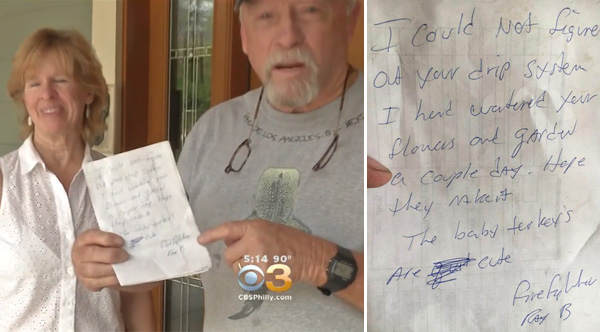 LOS ANGELES
Firefighter
Ray B
5:14 90°
3
CBSPhilly.com
I Could Not figure
out your drip system
I hand watered your
flowers and garden
a couple day. Hope
they make it
The baby turkey's
Are cute
firefighter
Ray B